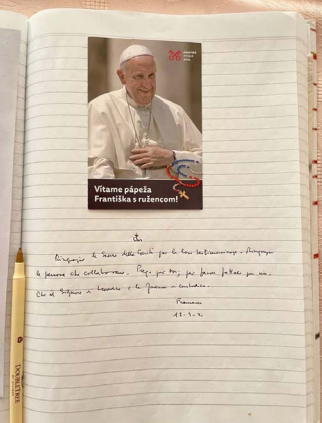 Vítame pápeža
Františka s ružencom!
Ringrazio le Suore della Carità per la loro testimonianza. Ringrazio
le persone che collaborano. Prego per voi, per favore fatelo per me.
Che il Signore vi benedica e la Madonna vi custodisca.
Francesco
DOUBLETREE